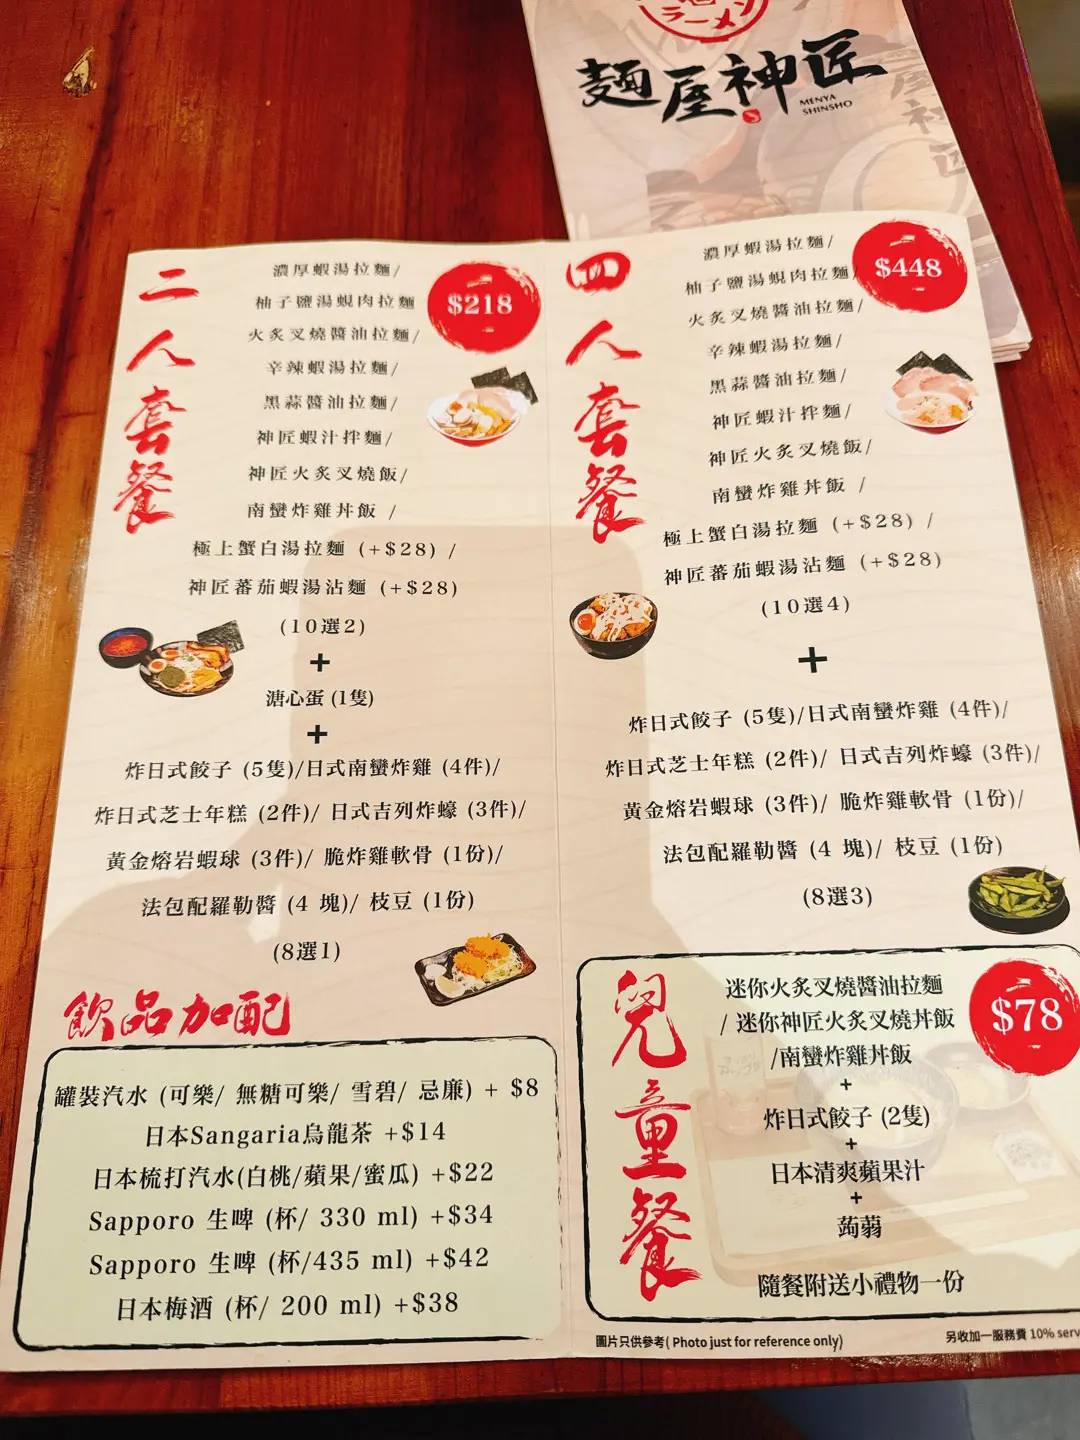 ラーメン
麵屋神匠
MENYA
SHINSHO
二人套餐
$218
濃厚蝦湯拉麵/
柚子鹽湯蜆肉拉麵
火炙叉燒醬油拉麵/
辛辣蝦湯拉麵/
黑蒜醬油拉麵/
神匠蝦汁拌麵/
神匠火炙叉燒飯/
南蠻炸雞丼飯 /
極上蟹白湯拉麵 (+$28) /
神匠蕃茄蝦湯沾麵 (+$28)
(10選2)
+
溏心蛋 (1隻)
+
炸日式餃子 (5隻)/日式南蠻炸雞 (4件)/
炸日式芝士年糕 (2件)/ 日式吉列炸蠔 (3件)/
黃金熔岩蝦球 (3件)/ 脆炸雞軟骨 (1份)/
法包配羅勒醬 (4 塊)/ 枝豆 (1份)
(8選1)
飲品加配
罐裝汽水 (可樂/ 無糖可樂/ 雪碧/ 忌廉) + $8
日本Sangaria烏龍茶 +$14
日本梳打汽水(白桃/蘋果/蜜瓜) +$22
Sapporo 生啤 (杯/ 330 ml) +$34
Sapporo 生啤 (杯/435 ml) +$42
日本梅酒 (杯/ 200 ml) +$38
四人套餐
$448
濃厚蝦湯拉麵/
柚子鹽湯蜆肉拉麵/
火炙叉燒醬油拉麵/
辛辣蝦湯拉麵/
黑蒜醬油拉麵/
神匠蝦汁拌麵/
神匠火炙叉燒飯/
南蠻炸雞丼飯 /
極上蟹白湯拉麵 (+$28) /
神匠蕃茄蝦湯沾麵 (+$28)
(10選4)
+
炸日式餃子 (5隻)/日式南蠻炸雞 (4件)/
炸日式芝士年糕 (2件)/ 日式吉列炸蠔 (3件)/
黃金熔岩蝦球 (3件)/ 脆炸雞軟骨 (1份)/
法包配羅勒醬 (4 塊)/ 枝豆 (1份)
(8選3)
兒童餐
$78
迷你火炙叉燒醬油拉麵
/ 迷你神匠火炙叉燒丼飯
/南蠻炸雞丼飯
+
炸日式餃子 (2隻)
+
日本清爽蘋果汁
+
蒟蒻
隨餐附送小禮物一份
圖片只供參考( Photo just for reference only)
另收加一服務費 10% serv